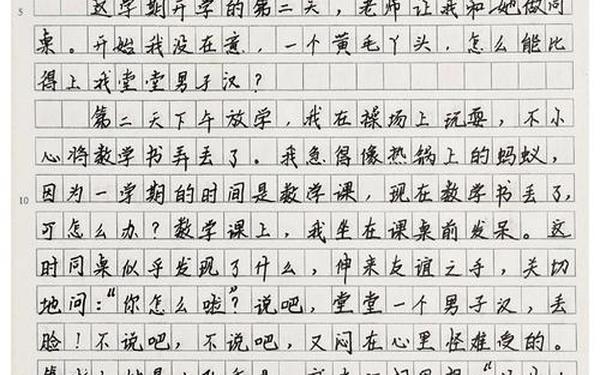 5 这学期开学的第二天，老师让我和她做同
桌。开始我没在意，一个黄毛丫头，怎么能比
得上我堂堂男子汉？
第二天下午放学，我在操场上玩耍，不小
心将数学书弄丢了。我急得像热锅上的蚂蚁，
10 因为一学期的时间是数学课，现在数学书丢了，
可怎么办？数学课上，我坐在课桌前发呆。这
时同桌似乎发现了什么，伸来友谊之手，关切
地问："你怎么啦？"说吧，堂堂一个男子汉，丢
脸！不说吧，不说吧，又闷在心里怪难受的。